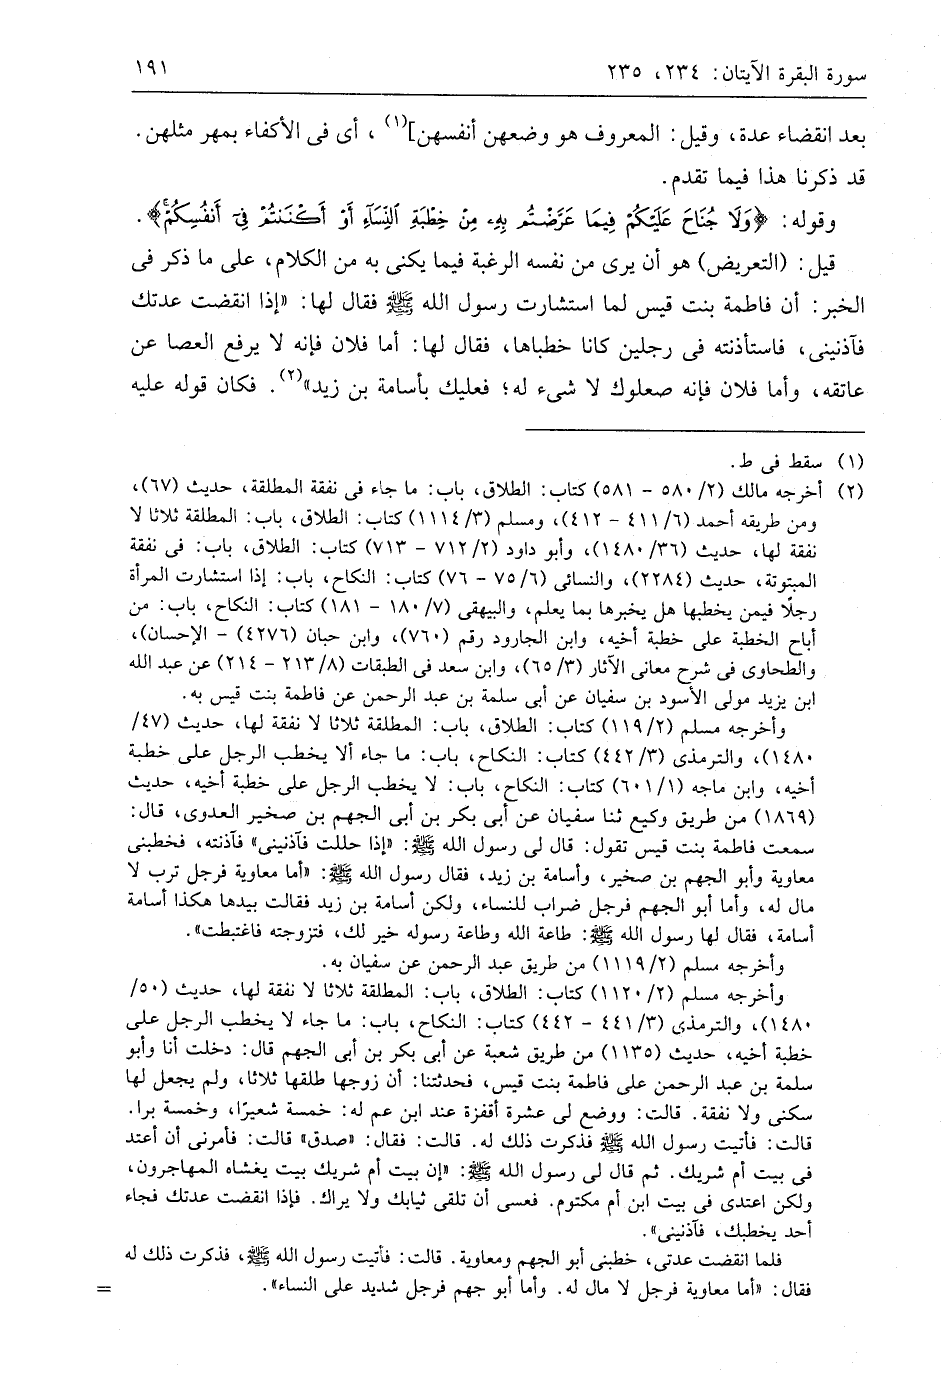 سورة البقرة الآيتان: ٢٣٤، ٢٣٥
١٩١
بعد انقضاء عدة، وقيل: المعروف هو وضعهن أنفسهن](١)، أى فى الأكفاء بمهر مثلهن.
قد ذكرنا هذا فيما تقدم.
وقوله: ﴿وَلَا جُنَاحَ عَلَيْكُمْ فِيمَا عَرَّضْتُم بِهِۦ مِنْ خِطْبَةِ ٱلنِّسَآءِ أَوْ أَكْنَنتُمْ فِىٓ أَنفُسِكُمْ﴾.
قيل: (التعريض) هو أن يرى من نفسه الرغبة فيما يكنى به من الكلام، على ما ذكر فى
الخبر: أن فاطمة بنت قيس لما استشارت رسول الله ﷺ فقال لها: «إذا انقضت عدتك
فآذنينى، فاستأذنته فى رجلين كانا خطباها، فقال لها: أما فلان فإنه لا يرفع العصا عن
عاتقه، وأما فلان فإنه صعلوك لا شىء له؛ فعليك بأسامة بن زيد»(٢). فكان قوله عليه
(١) سقط فى ط.
(٢) أخرجه مالك (٢/ ٥٨٠ - ٥٨١) كتاب: الطلاق، باب: ما جاء فى نفقة المطلقة، حديث (٦٧)،
ومن طريقه أحمد (٦/ ٤١١ - ٤١٢)، ومسلم (٣/ ١١١٤) كتاب: الطلاق، باب: المطلقة ثلاثا لا
نفقة لها، حديث (٣٦/ ١٤٨٠)، وأبو داود (٢/ ٧١٢ - ٧١٣) كتاب: الطلاق، باب: فى نفقة
المبتوتة، حديث (٢٢٨٤)، والنسائى (٦/ ٧٥ - ٧٦) كتاب: النكاح، باب: إذا استشارت المرأة
رجلًا فيمن يخطبها هل يخبرها بما يعلم، والبيهقى (٧/ ١٨٠ - ١٨١) كتاب: النكاح، باب: من
أباح الخطبة على خطبة أخيه، وابن الجارود رقم (٧٦٠)، وابن حبان (٤٢٧٦) - الإحسان)،
والطحاوى فى شرح معانى الآثار (٣/ ٦٥)، وابن سعد فى الطبقات (٨/ ٢١٣ - ٢١٤) عن عبد الله
ابن يزيد مولى الأسود بن سفيان عن أبى سلمة بن عبد الرحمن عن فاطمة بنت قيس به.
وأخرجه مسلم (٢/ ١١٩) كتاب: الطلاق، باب: المطلقة ثلاثا لا نفقة لها، حديث (٤٧/
١٤٨٠)، والترمذى (٣/ ٤٤٢) كتاب: النكاح، باب: ما جاء ألا يخطب الرجل على خطبة
أخيه، وابن ماجه (١/ ٦٠١) كتاب: النكاح، باب: لا يخطب الرجل على خطبة أخيه، حديث
(١٨٦٩) من طريق وكيع ثنا سفيان عن أبى بكر بن أبى الجهم بن صخير العدوى، قال:
سمعت فاطمة بنت قيس تقول: قال لى رسول الله ﷺ: «إذا حللت فآذنينى» فآذنته، فخطبنى
معاوية وأبو الجهم بن صخير، وأسامة بن زيد، فقال رسول الله ﷺ: «أما معاوية فرجل ترب لا
مال له، وأما أبو الجهم فرجل ضراب للنساء، ولكن أسامة بن زيد فقالت بيدها هكذا أسامة
أسامة، فقال لها رسول الله ﷺ: طاعة الله وطاعة رسوله خير لك، فتزوجته فاغتبطت».
وأخرجه مسلم (٢/ ١١١٩) من طريق عبد الرحمن عن سفيان به.
وأخرجه مسلم (٢/ ١١٢٠) كتاب: الطلاق، باب: المطلقة ثلاثا لا نفقة لها، حديث (٥٠/
١٤٨٠)، والترمذى (٣/ ٤٤١ - ٤٤٢) كتاب: النكاح، باب: ما جاء لا يخطب الرجل على
خطبة أخيه، حديث (١١٣٥) من طريق شعبة عن أبى بكر بن أبى الجهم قال: دخلت أنا وأبو
سلمة بن عبد الرحمن على فاطمة بنت قيس، فحدثتنا: أن زوجها طلقها ثلاثا، ولم يجعل لها
سكنى ولا نفقة. قالت: ووضع لى عشرة أقفزة عند ابن عم له: خمسة شعيرًا، وخمسة برا.
قالت: فأتيت رسول الله ﷺ فذكرت ذلك له. قالت: فقال: «صدق» قالت: فأمرنى أن أعتد
فى بيت أم شريك. ثم قال لى رسول الله ﷺ: «إن بيت أم شريك بيت يغشاه المهاجرون،
ولكن اعتدى فى بيت ابن أم مكتوم. فعسى أن تلقى ثيابك ولا يراك. فإذا انقضت عدتك فجاء
أحد يخطبك، فآذنينى».
فلما انقضت عدتى، خطبنى أبو الجهم ومعاوية. قالت: فأتيت رسول الله ﷺ، فذكرت ذلك له
فقال: «أما معاوية فرجل لا مال له. وأما أبو جهم فرجل شديد على النساء». =